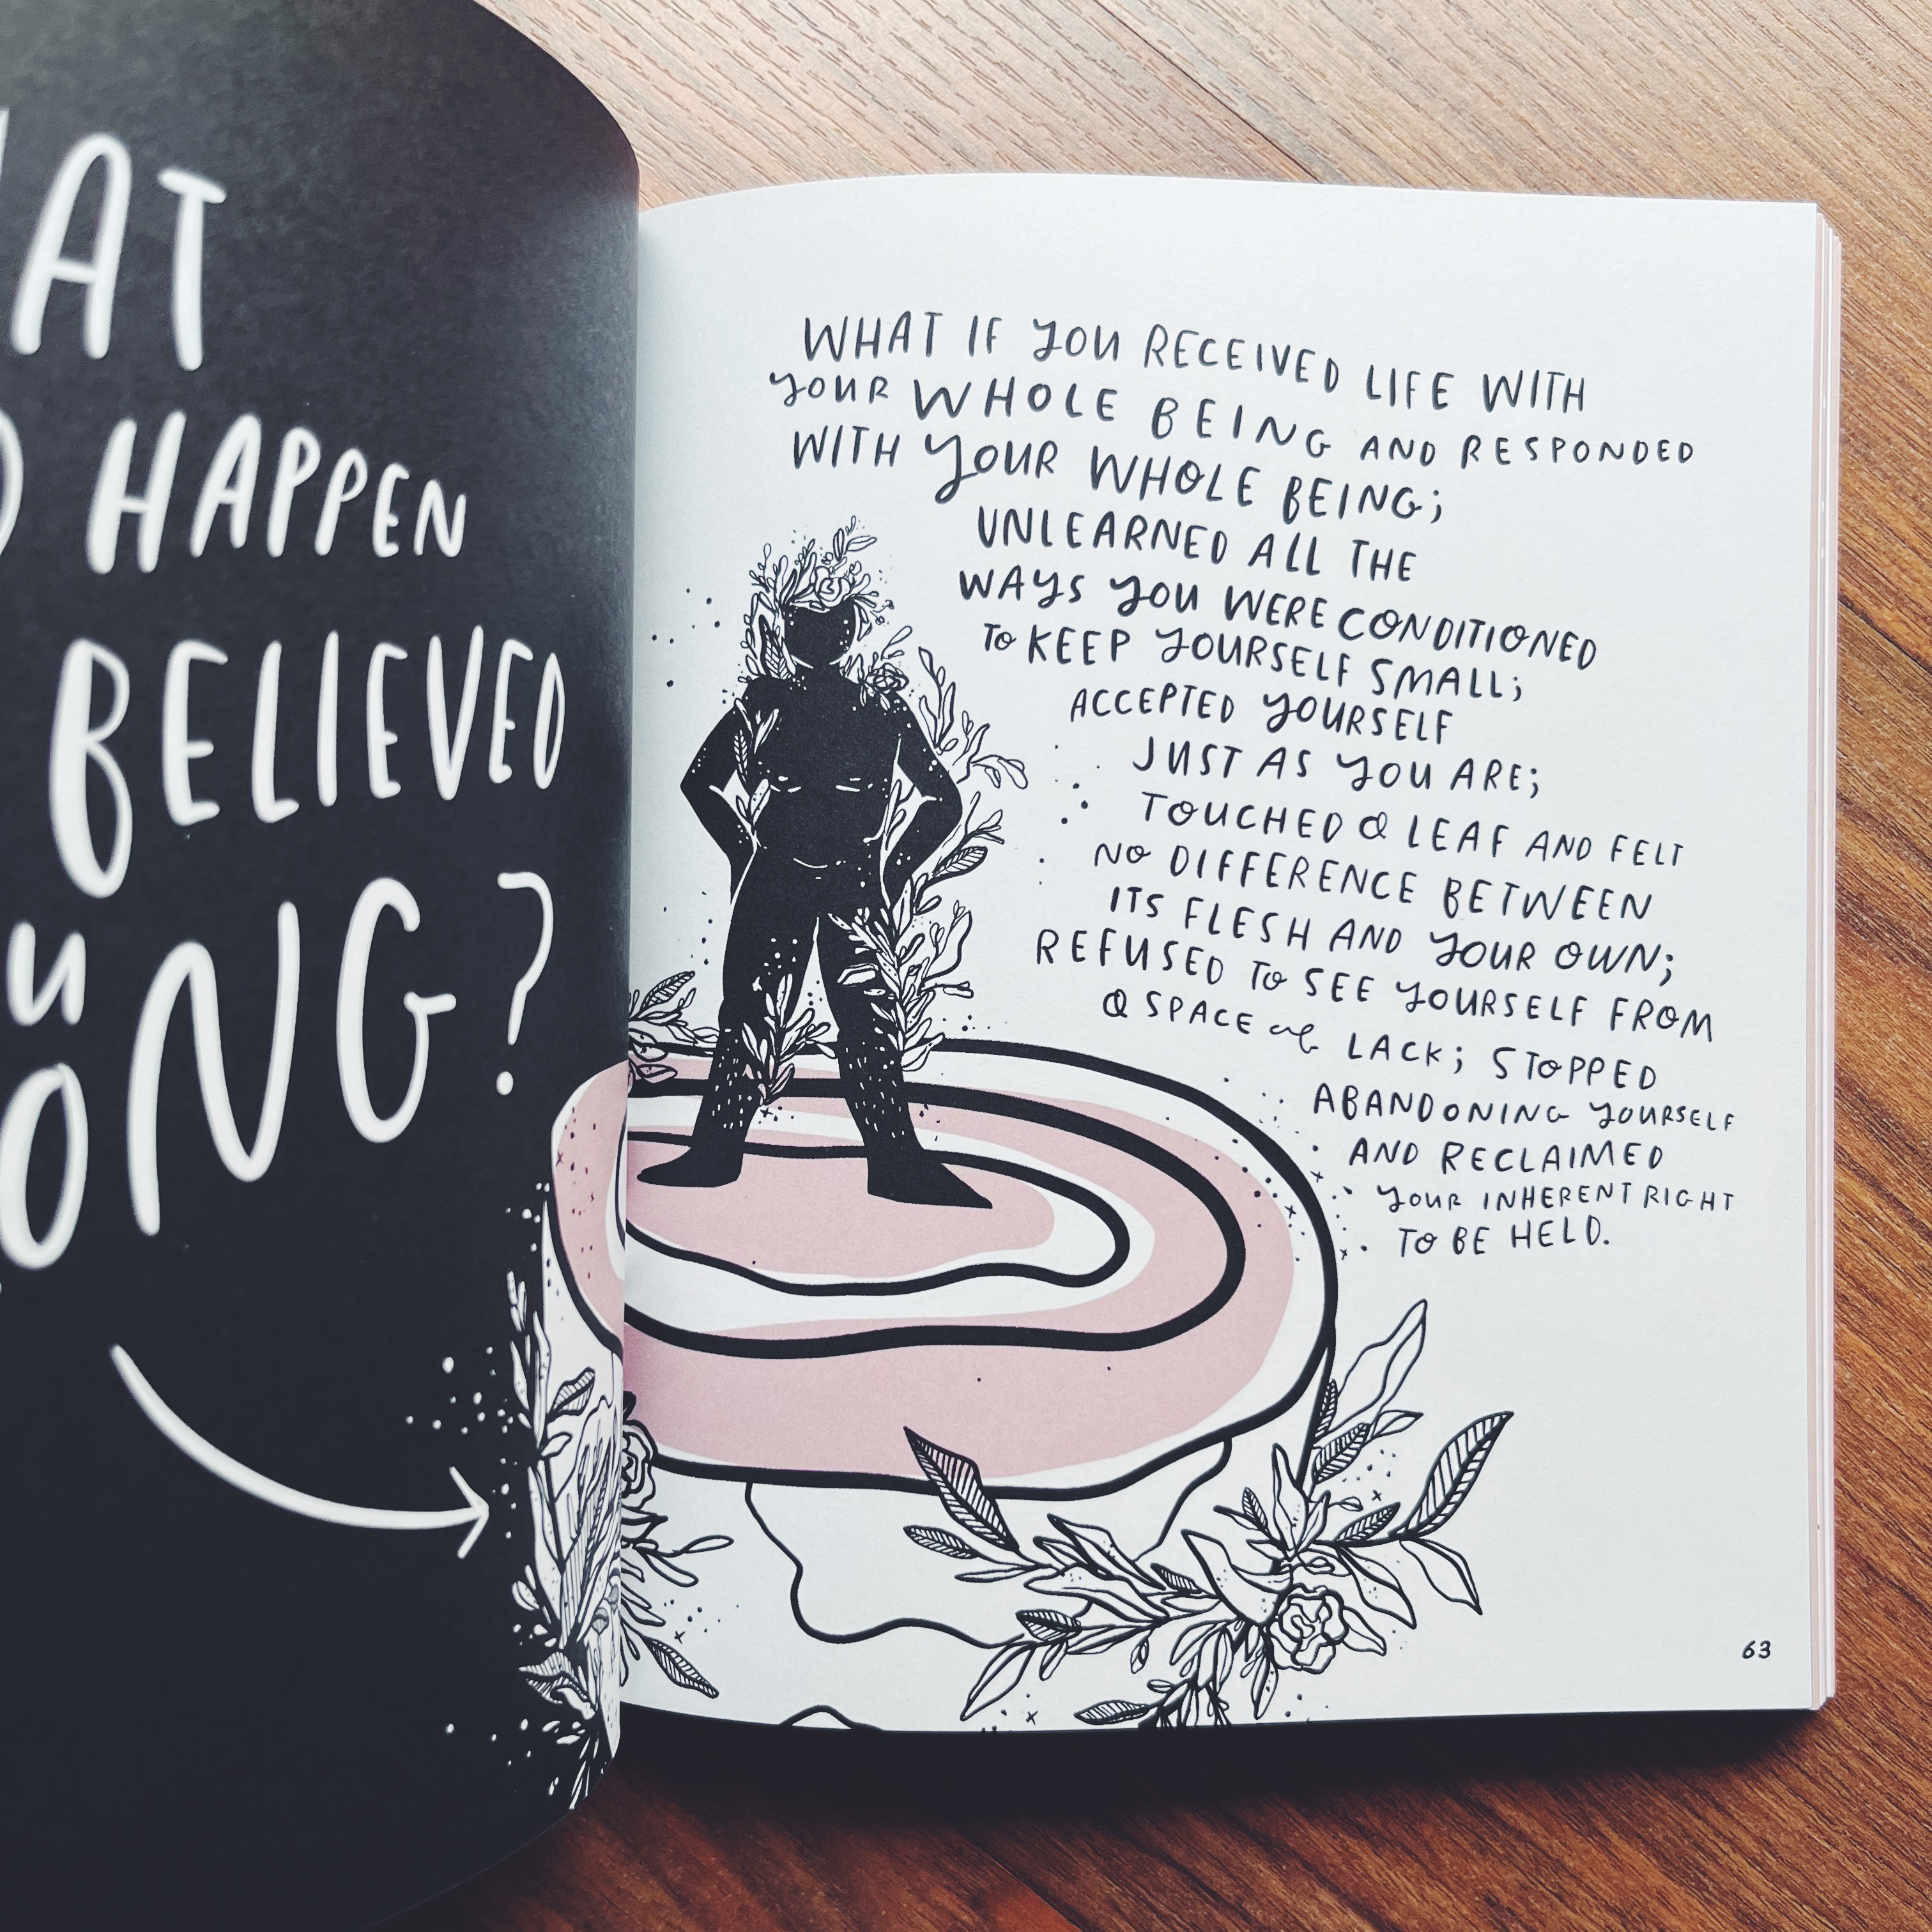 HAPPEN
BELIEVED
WHAT IF YOU RECEIVED LIFE WITH
YOUR WHOLE BEING AND RESPONDED
WITH YOUR WHOLE BEING;
UNLEARNED ALL THE
WAYS YOU WERE CONDITIONED
TO KEEP YOURSELF SMALL;
ACCEPTED YOURSELF
JUST AS YOU ARE;
TOUCHED A LEAF AND FELT
NO DIFFERENCE BETWEEN
ITS FLESH AND YOUR OWN;
REFUSED TO SEE YOURSELF FROM
A SPACE OF LACK; STOPPED
ABANDONING YOURSELF
AND RECLAIMED
YOUR INHERENT RIGHT
TO BE HELD.
63